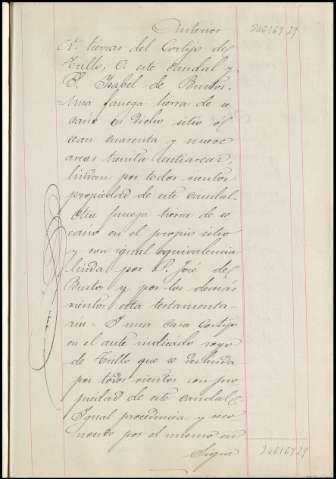 Anterior 346164 27
N. tierras del Cortijo de
Trillo, O. este caudal y
P. Isabel de Burtos.
Una fanega tierra de se
cano en dicho sitio, ó
sean cuarenta y nueve
areas treinta centiareas,
lindan por todos vientos
propiedad de este caudal.
Otra fanega tierra de se
cano en el propio sitio
y con igual equivalencia
linda por D. José de
Bustos y por los demás
vientos esta testamenta
ria. Y una casa Cortijo
en el ante indicado
de Trillo que se deslinda
por todos vientos con pro
piedad de este caudal.
Igual procedencia y
por el mismo en
Sigue